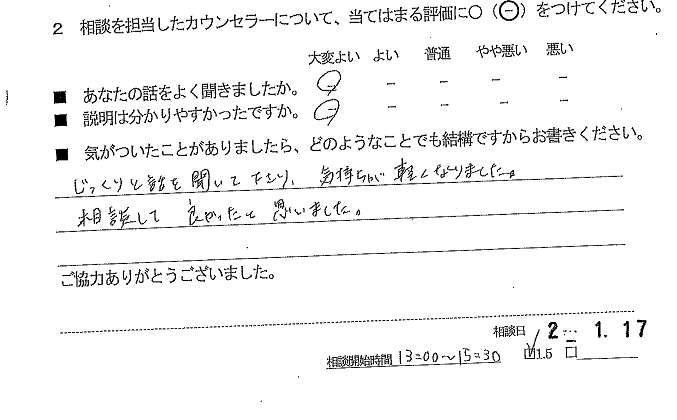 2 相談を担当したカウンセラーについて、当てはまる評価に○（⊖）をつけてください。
大変よい よい 普通 やや悪い 悪い
■ あなたの話をよく聞きましたか。 ⊖ − − − −
■ 説明は分かりやすかったですか。 ⊖ − − − −
■ 気がついたことがありましたら、どのようなことでも結構ですからお書きください。
じっくりと話を聞いて下さり、気持ちが軽くなりました。
相談して良かったと思いました。
ご協力ありがとうございました。
相談日 2 1.17
相談開始時間 13:00〜15:30 ☑1.5 □